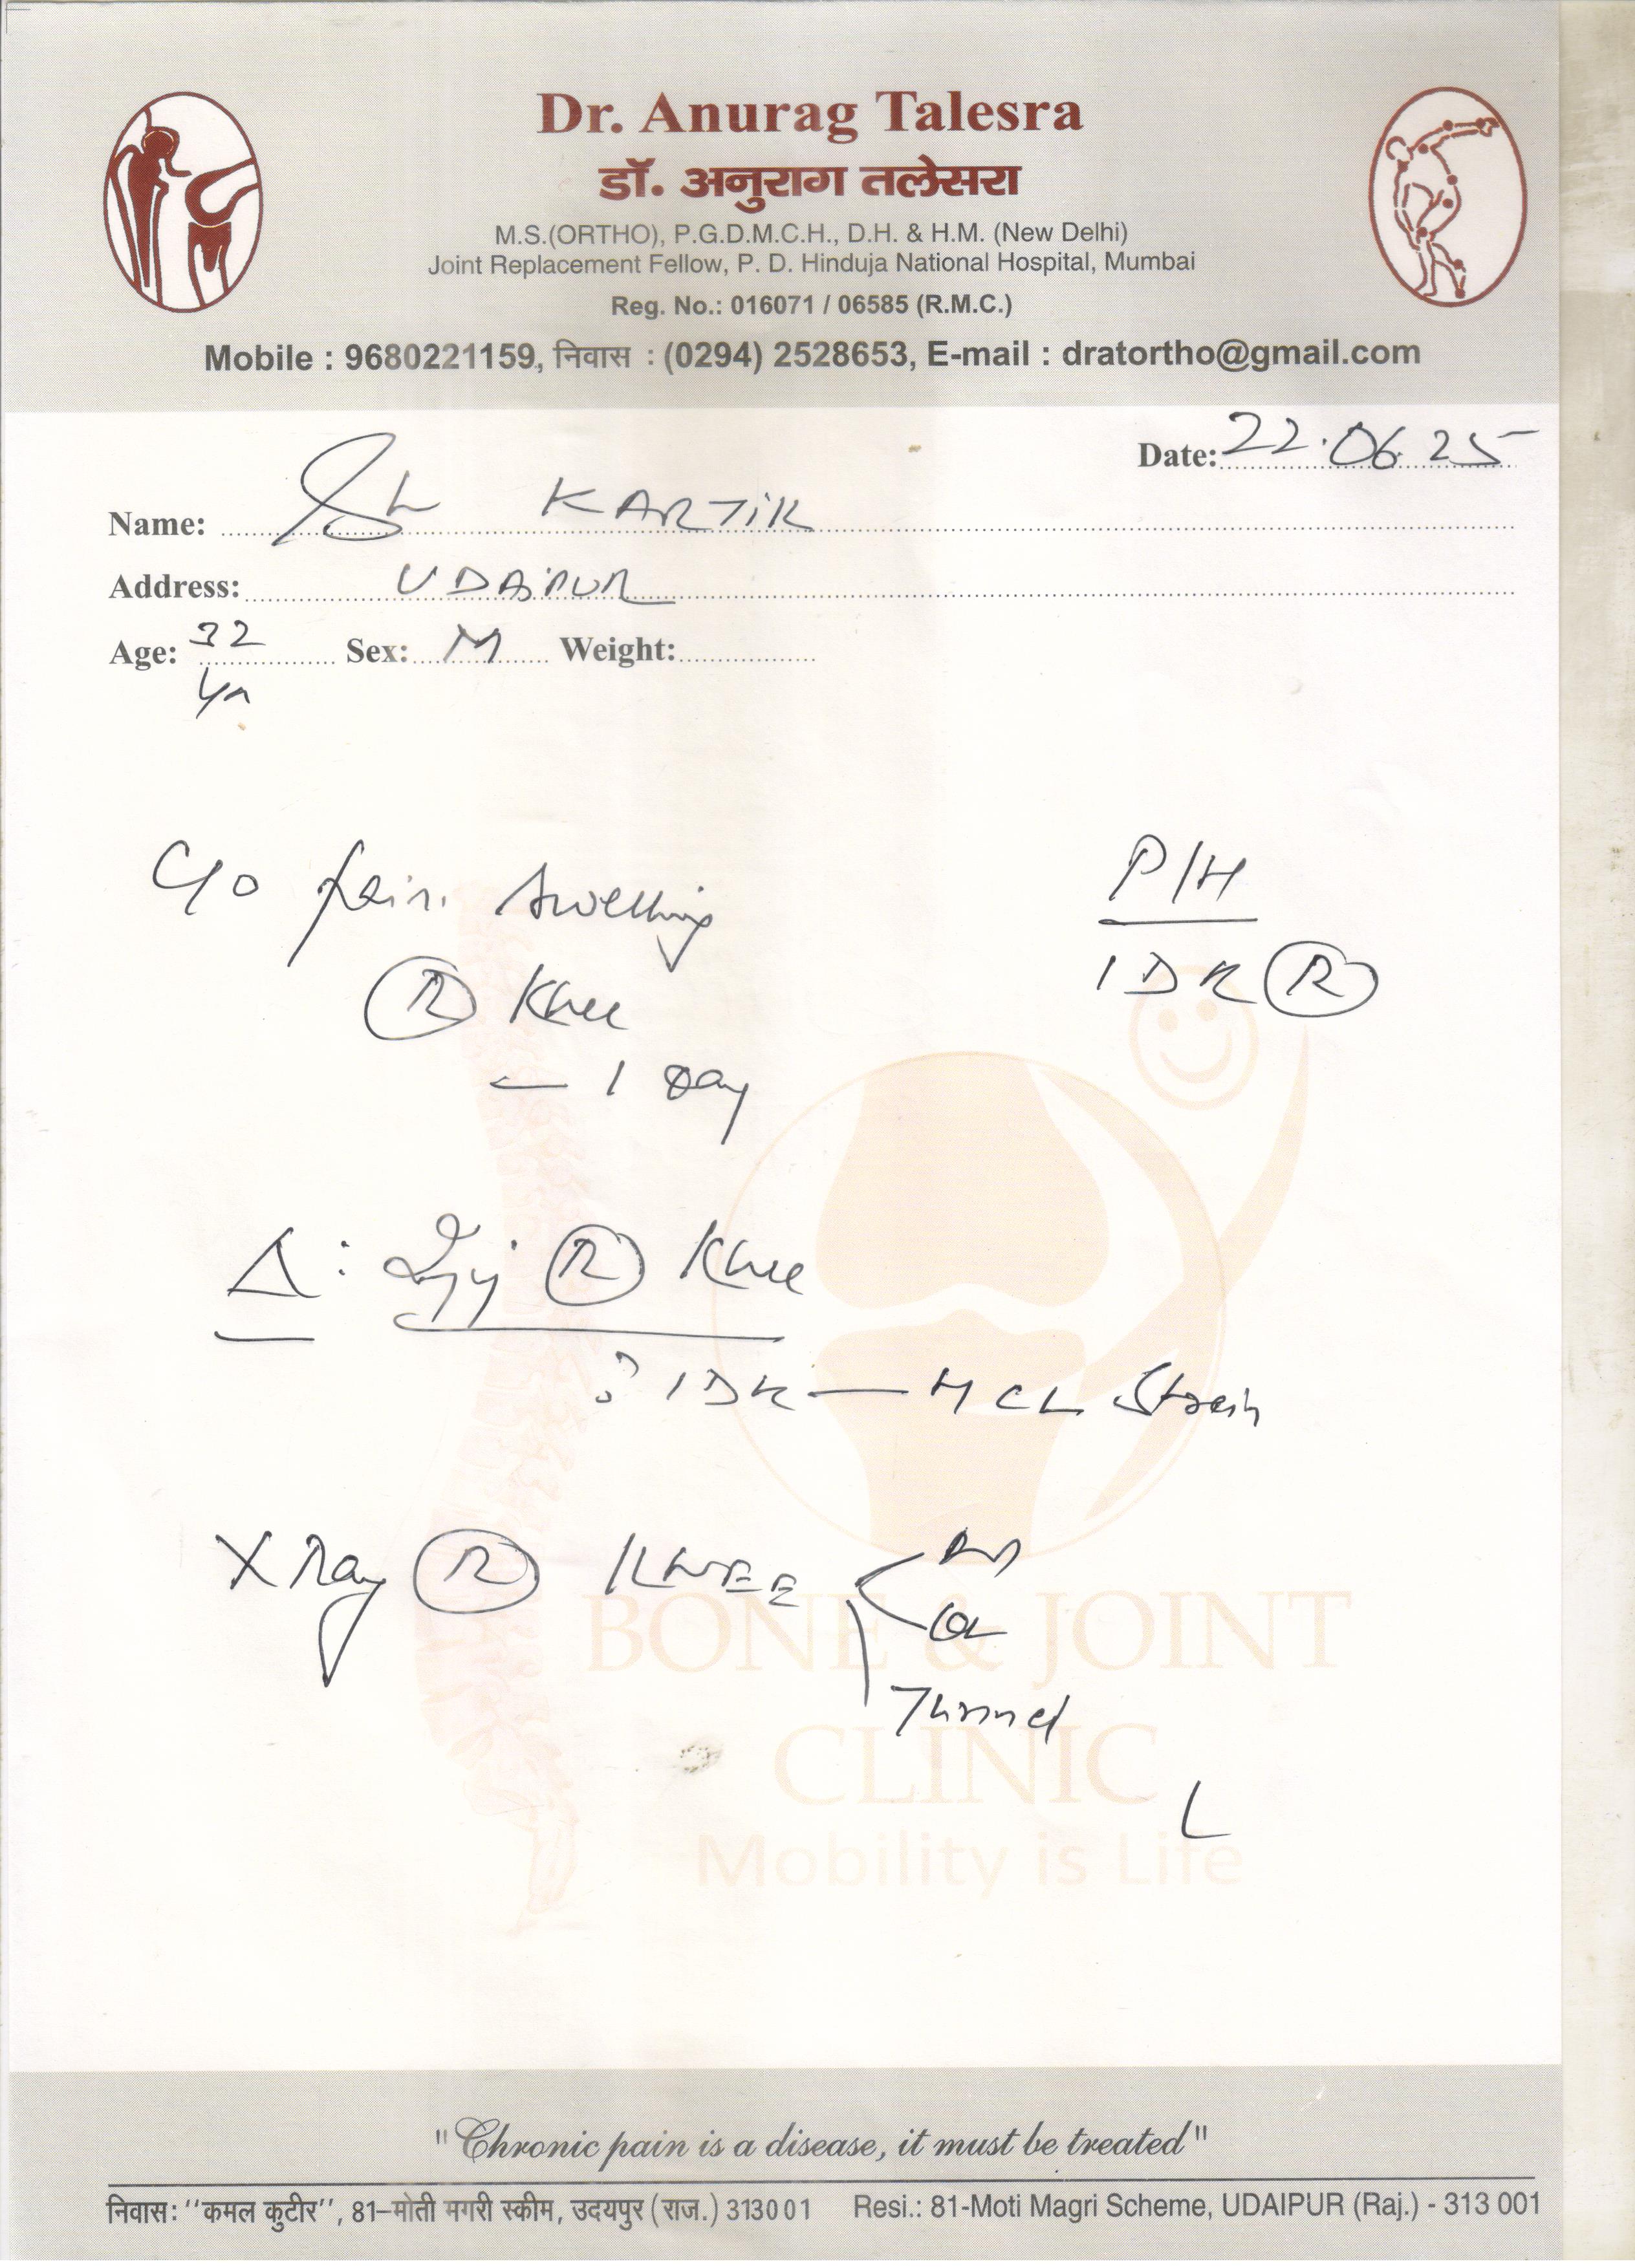 Dr. Anurag Talesra
डॉ. अनुराग तलेसरा
M.S.(ORTHO), P.G.D.M.C.H., D.H. & H.M. (New Delhi)
Joint Replacement Fellow, P. D. Hinduja National Hospital, Mumbai
Reg. No.: 016071 / 06585 (R.M.C.)
Mobile : 9680221159, निवास : (0294) 2528653, E-mail : dratortho@gmail.com
Date: 22.06.25
Name: Sh KARTIK
Address: UDAIPUR
Age: 32 Sex: M Weight:
Yr
C/o pain. Swelling
P/H
R Knee
IDK R
— 1 Day
Δ: Inj R Knee
? IDK — MCL Strain
X Ray R KNEE
Tunnel
L
BONE & JOINT
CLINIC
Mobility is Life
"Chronic pain is a disease, it must be treated"
निवास: ''कमल कुटीर'', 81–मोती मगरी स्कीम, उदयपुर (राज.) 313001 Resi.: 81-Moti Magri Scheme, UDAIPUR (Raj.) - 313 001